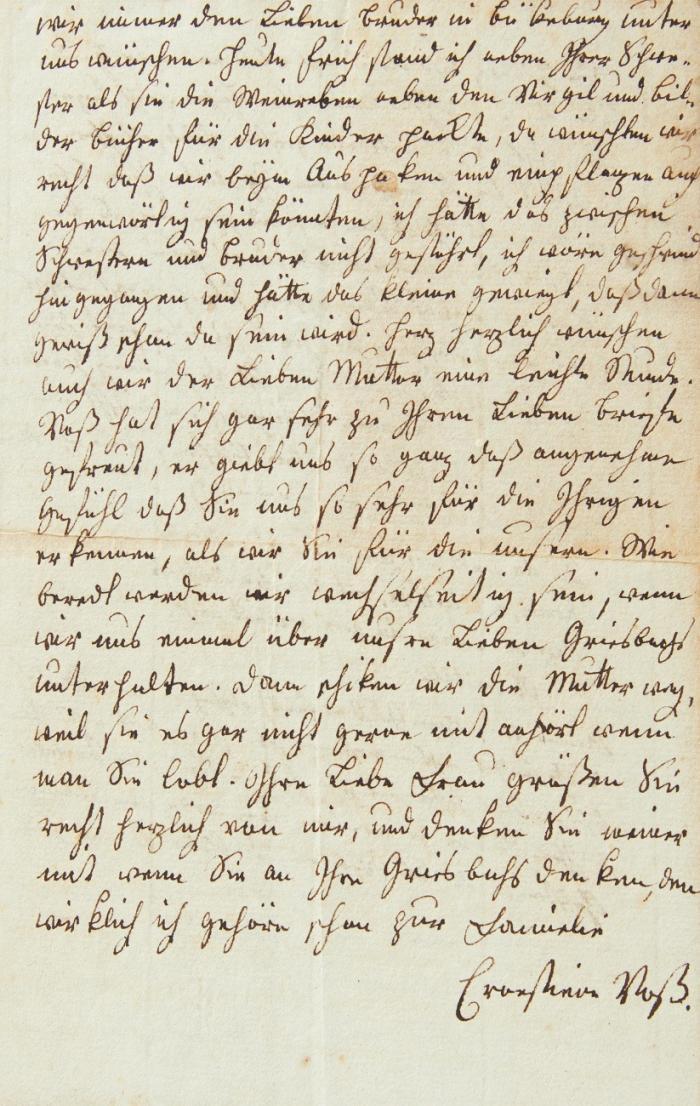 wir immer den Lieben Bruder in Bükeburg unter
uns wünschen. Heute früh stand ich neben Ihrer Schwe-
ster als sie die Weinreben neben den Virgil und Bil-
der Bücher für die Kinder packte, da wünschten wir
recht daß wir beym Auspaken und einpflanzen auch
gegenwärtig sein könnten, ich hätte das zwischen
Schwestern und Bruder nicht gestöhrt, ich wäre geschwind
hingegangen und hätte das kleine gewiegt, daß dann
gewiß schon da sein wird. Herz herzlich wünschen
auch wir der Lieben Mutter eine leichte Stunde.
Voß hat sich gar sehr zu Ihrem Lieben Briefe
gefreut, er giebt uns so ganz daß angenehme
Gefühl daß Sie uns so sehr für die Ihrigen
erkennen, als wir Sie für die unsern. Wie
beredt werden wir wechselseitig sein, wenn
wir uns einmal über unsre Lieben Griesbachs
unterhalten. Dann schiken wir die Mutter weg,
weil sie es gar nicht gerne mit anhört wenn
man Sie lobt. Ihre Liebe Frau grüßen Sie
recht herzlich von mir, und denken Sie meiner
mit wenn Sie an Ihre Griesbachs denken, den
wirklich ich gehöre schon zur Familie
Ernestine Voß.